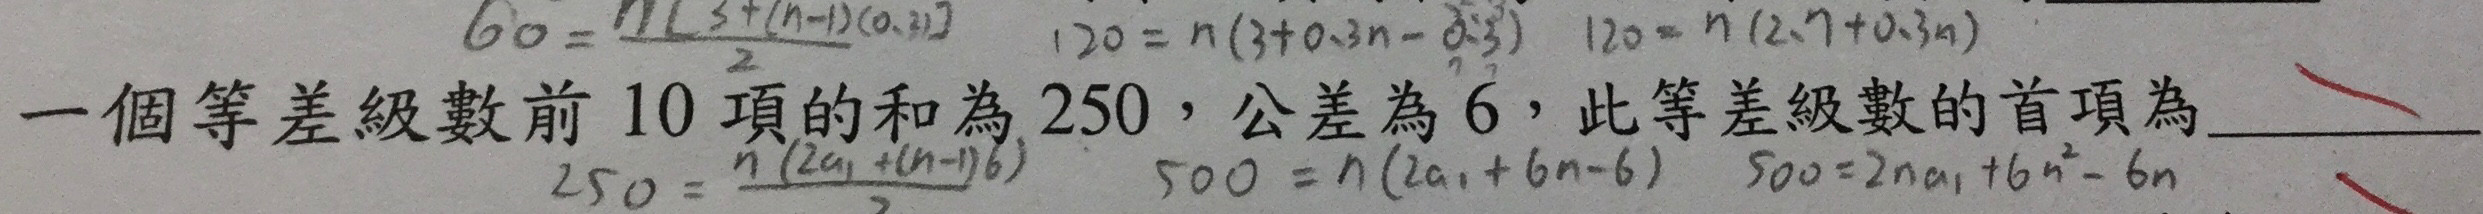 60 = n[3+(n-1)(0.3)]/2 120 = n(3+0.3n-0.3) 120 = n(2.7+0.3n)
一個等差級數前 10 項的和為 250，公差為 6，此等差級數的首項為________
250 = n(2a₁+(n-1)6)/2 500 = n(2a₁+6n-6) 500=2na₁+6n²-6n